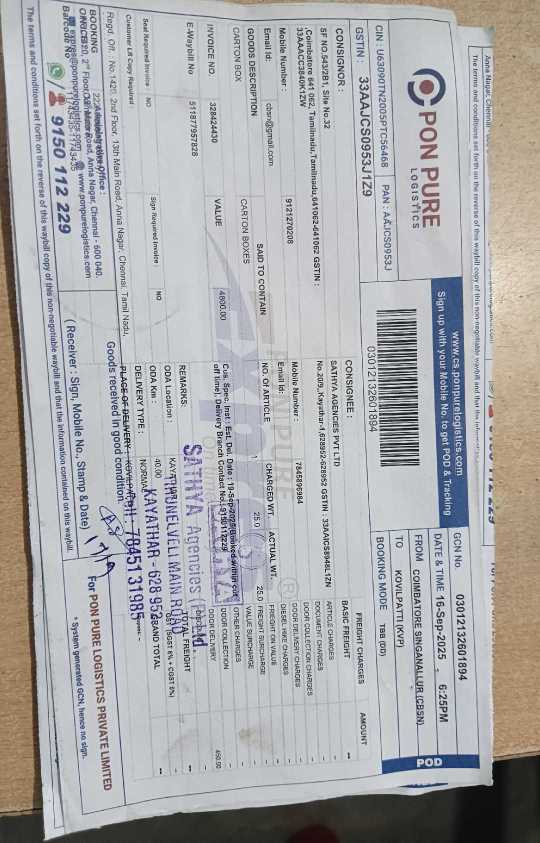 PON PURE
LOGISTICS
CIN : U63090TN2005PTC56468 PAN : AAJCS0953J
GSTIN : 33AAJCS0953J1Z9
www.cs.ponpurelogistics.com
Sign up with your Mobile No. to get POD & Tracking
03012132601894
POD
GCN No. 03012132601894
DATE & TIME 16-Sep-2025 6:25PM
FROM COIMBATORE SINGANALLUR (CBSN)
TO KOVILPATTI (KVP)
BOOKING MODE TBB (DD)
CONSIGNOR :
SF NO.543/2B1, Site No.32
,Coimbatore 641 062, Tamilnadu,Tamilnadu,641062-641062 GSTIN :
33AAACC3840K1ZW
Mobile Number : 9121270208
Email Id: cbsn@gmail.com
CONSIGNEE :
SATHYA AGENCIES PVT LTD
No.20/9,Kayathar-1,628952-628952 GSTIN : 33AAICS8948L1ZN
Mobile Number : 7845896984
Email Id:
GOODS DESCRIPTION SAID TO CONTAIN NO. OF ARTICLE CHARGED WT. ACTUAL WT.
CARTON BOX CARTON BOXES 1 25.0 25.0
INVOICE NO. VALUE
328424430 4800.00
E-Waybill No 511877957828
Cus. Spec. Inst : Est. Del. Date : 19-Sep-2025
Delivery Branch Contact No.:9150112229
REMARKS:
ODA Location :
ODA Km : 40.00
DELIVERY TYPE : NORMAL
PLACE OF DELIVERY :
Seal Required Invoice : NO Sign Required Invoice : NO
Customer LR Copy Required :
FREIGHT CHARGES AMOUNT
BASIC FREIGHT --
ARTICLE CHARGES -
DOCUMENT CHARGES -
DOOR COLLECTION CHARGES -
DOOR DELIVERY CHARGES -
DIESEL HIKE CHARGES -
FREIGHT ON VALUE -
FREIGHT SURCHARGE -
VALUE SURCHARGE -
OTHER CHARGES -
DOOR COLLECTION -
DOOR DELIVERY 450.00
TOTAL FREIGHT --
GRAND TOTAL --
SATHYA Agencies (P) Ltd
TIRUNELVELI MAIN ROAD
KAYATHAR - 628 952
Cell: 78451 31985
Regd. Off.: No.1420, 2nd Floor, 13th Main Road, Anna Nagar, Chennai, Tamil Nadu,
BOOKING
Administrative Office :
2nd Floor, Main Road, Anna Nagar, Chennai - 600 040.
www.ponpurelogistics.com
Barcode No
9150 112 229
Goods received in good condition
17/9
( Receiver : Sign, Mobile No., Stamp & Date)
For PON PURE LOGISTICS PRIVATE LIMITED
* System generated GCN, hence no sign.
The terms and conditions set forth on the reverse of this waybill copy of this non-negotiable waybill and that the information contained on this waybill.